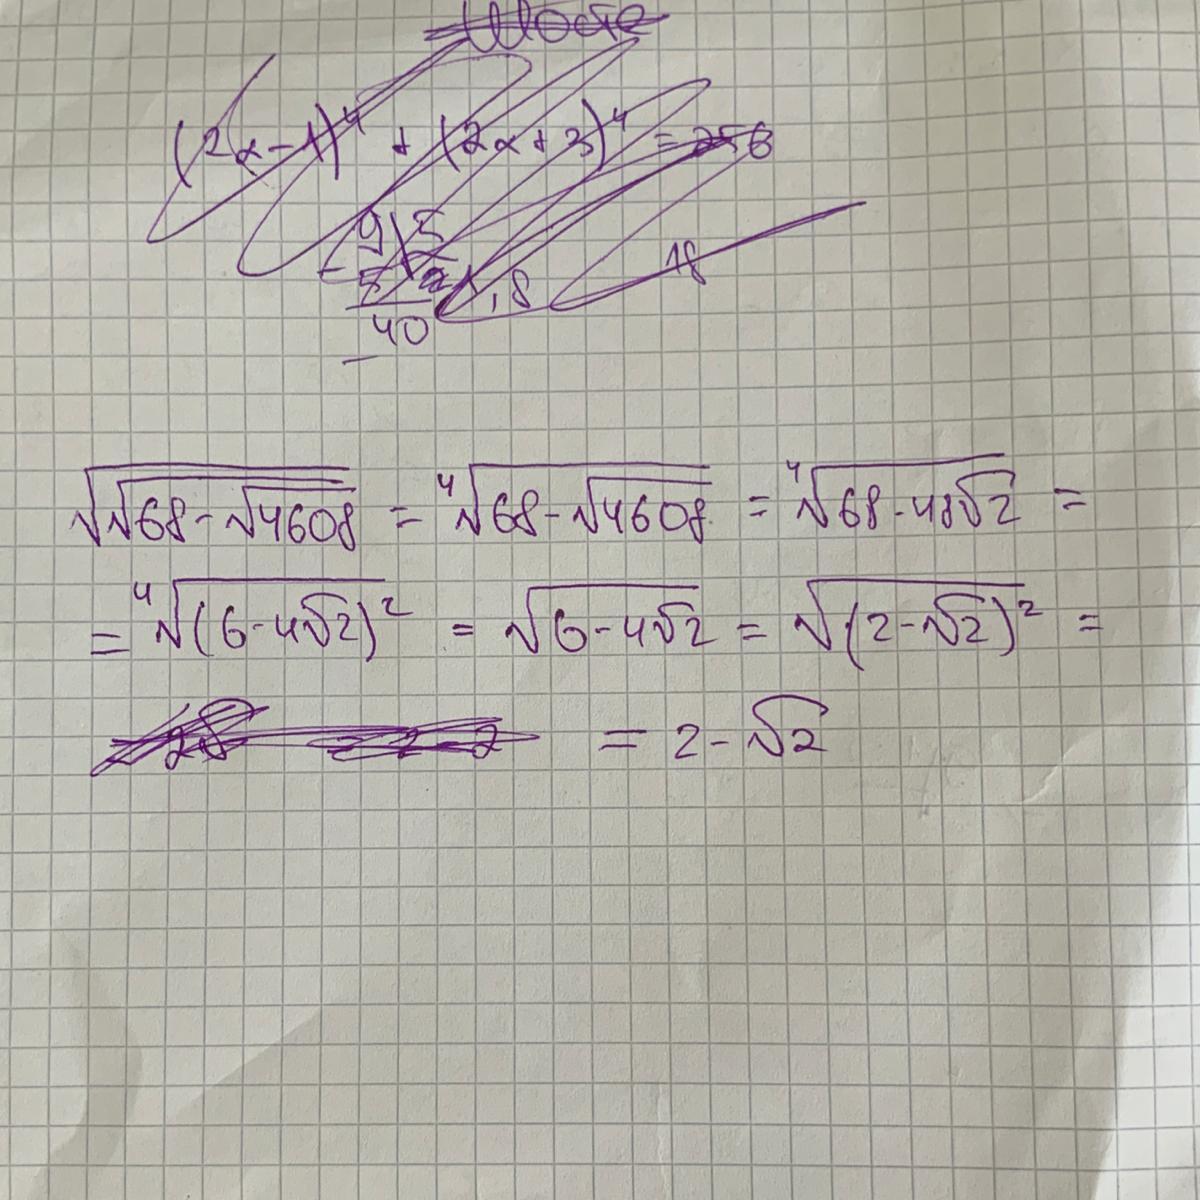 (2x-1)⁴ + (2x+3)⁴ = 256
9 5
5
1,8
18
40
√√68-√4608 = ⁴√68-√4608 = ⁴√68-48√2 =
= ⁴√(6-4√2)² = √6-4√2 = √(2-√2)² =
= 2-√2